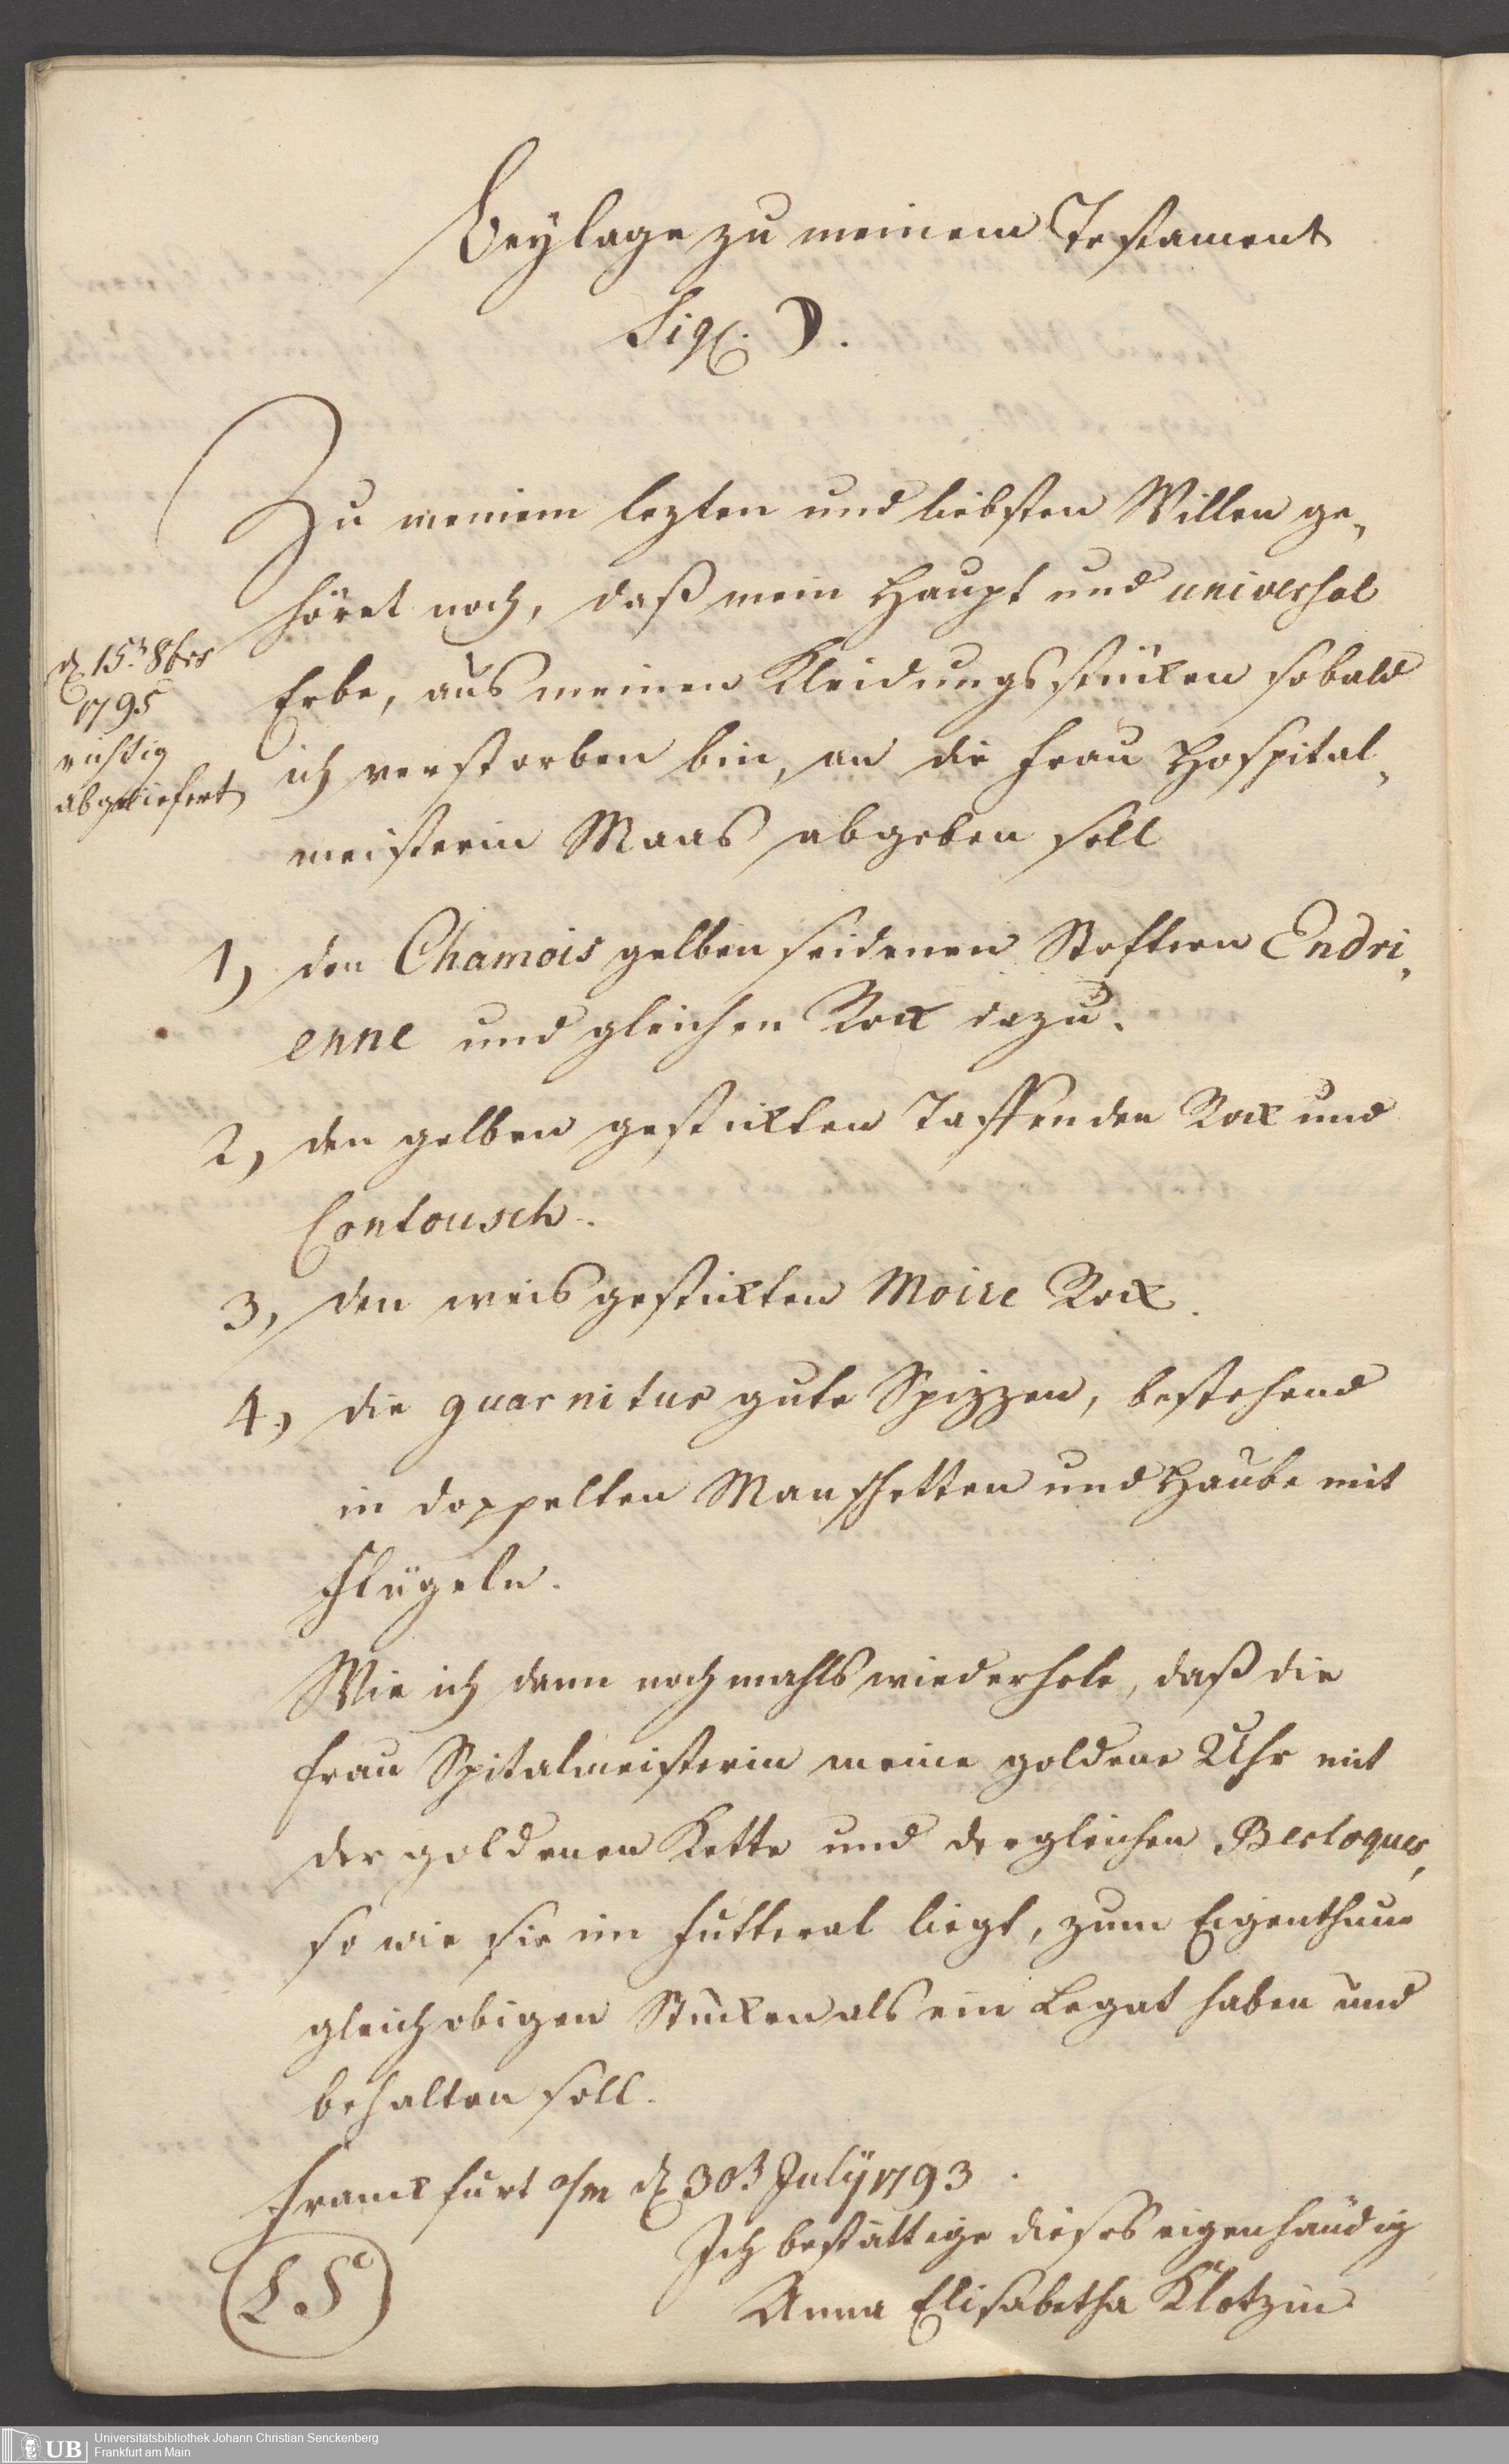 Beylage zu meinem Testament
Sig. D.
Zu meinem lezten und liebsten Willen ge„
höret noch, daß mein Haupt und universal
Erbe, aus meinen Kleidungsstüken sobald
ich verstorben bin, an die Frau Hospital„
meisterin Maas abgeben soll
d. 15. 8brs
1795
richtig
abgeliefert
1) den Chamois gelben seidenen Stoffern Endri„
enne und gleichen Rock dazu.
2) den gelben gestickten Taffenden Rock und
Contousch.
3) den weis gestickten Moire Rock.
4) die guarnitur gute Spizzen, bestehend
in doppelten Manschetten und Haube mit
Flügeln.
Wie ich dann nochmahls wiederhole, daß die
Frau Spitalmeisterin meine goldene Uhr mit
der goldenen Kette und dergleichen Berloques,
so wie sie im Futteral liegt, zum Eigenthum
gleich obigen Stücken als ein Legat haben und
behalten soll.
Franckfurt a/m d. 30. July 1793.
Ich bestättige dieses eigenhändig
LS
Anna Elisabetha Klotzin
UB
Universitätsbibliothek Johann Christian Senckenberg
Frankfurt am Main